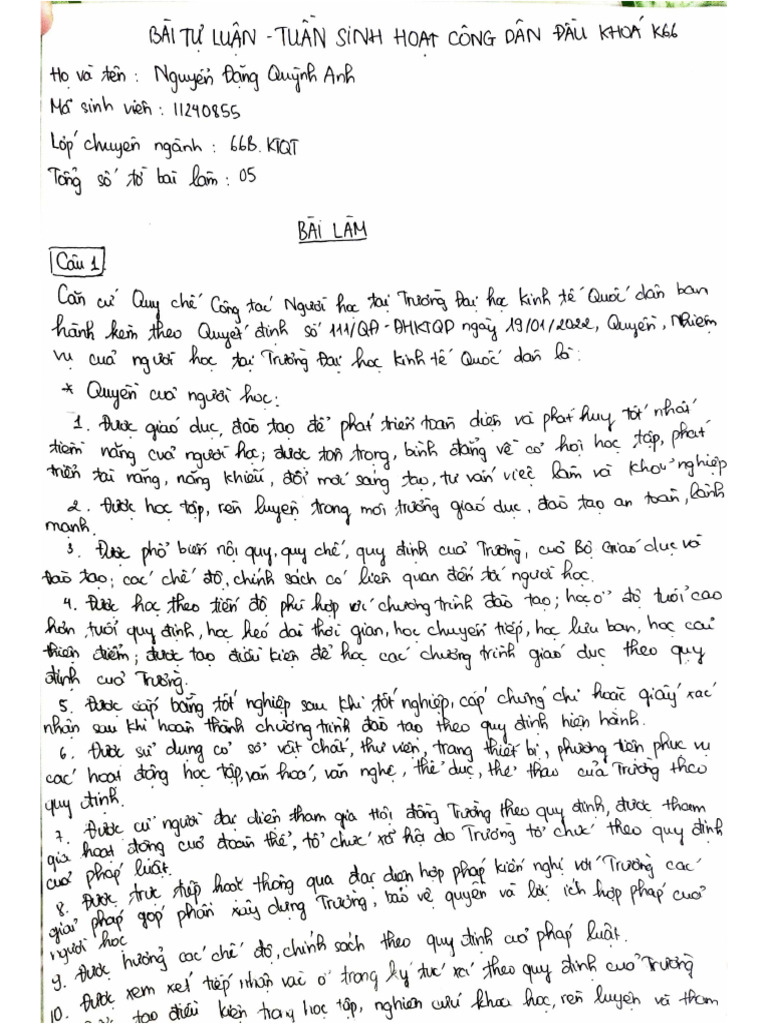 BÀI TỰ LUẬN - TUẦN SINH HOẠT CÔNG DÂN ĐẦU KHOÁ K66
Họ và tên : Nguyễn Đặng Quỳnh Anh
Mã sinh viên : 11240855
Lớp chuyên ngành : 66B.KTQT
Tổng số tờ bài làm : 05
BÀI LÀM
Câu 1
Căn cứ Quy chế Công tác Người học tại Trường Đại học Kinh tế Quốc dân ban
hành kèm theo Quyết định số 111/QĐ-ĐHKTQD ngày 19/01/2022, Quyền, Nhiệm
vụ của người học tại Trường Đại học Kinh tế Quốc dân là:
* Quyền của người học:
1. Được giáo dục, đào tạo để phát triển toàn diện và phát huy tốt nhất
tiềm năng của người học; được tôn trọng, bình đẳng về cơ hội học tập, phát
triển tài năng, năng khiếu, đổi mới sáng tạo, tư vấn việc làm và khởi nghiệp
2. Được học tập, rèn luyện trong môi trường giáo dục, đào tạo an toàn, lành
mạnh.
3. Được phổ biến nội quy, quy chế, quy định của Trường, của Bộ Giáo dục và
Đào tạo; các chế độ, chính sách có liên quan đến tới người học.
4. Được học theo tiến độ phù hợp với chương trình đào tạo; học ở độ tuổi cao
hơn tuổi quy định, học kéo dài thời gian, học chuyển tiếp, học lưu ban, học cải
thiện điểm; được tạo điều kiện để học các chương trình giáo dục theo quy
định của Trường.
5. Được cấp bằng tốt nghiệp sau khi tốt nghiệp, cấp chứng chỉ hoặc giấy xác
nhận sau khi hoàn thành chương trình đào tạo theo quy định hiện hành.
6. Được sử dụng cơ sở vật chất, thư viện, trang thiết bị, phương tiện phục vụ
các hoạt động học tập, văn hoá, văn nghệ, thể dục, thể thao của Trường theo
quy định.
7. Được cử người đại diện tham gia Hội đồng Trường theo quy định, được tham
gia hoạt động của đoàn thể, tổ chức xã hội do Trường tổ chức theo quy định
của pháp luật.
8. Được trực tiếp hoặc thông qua đại diện hợp pháp kiến nghị với Trường các
giải pháp góp phần xây dựng Trường, bảo vệ quyền và lợi ích hợp pháp của
người học
9. Được hưởng các chế độ, chính sách theo quy định của pháp luật.
10. Được xem xét tiếp nhận vào ở trong ký túc xá theo quy định của Trường
tạo điều kiện trong học tập, nghiên cứu khoa học, rèn luyện và tham